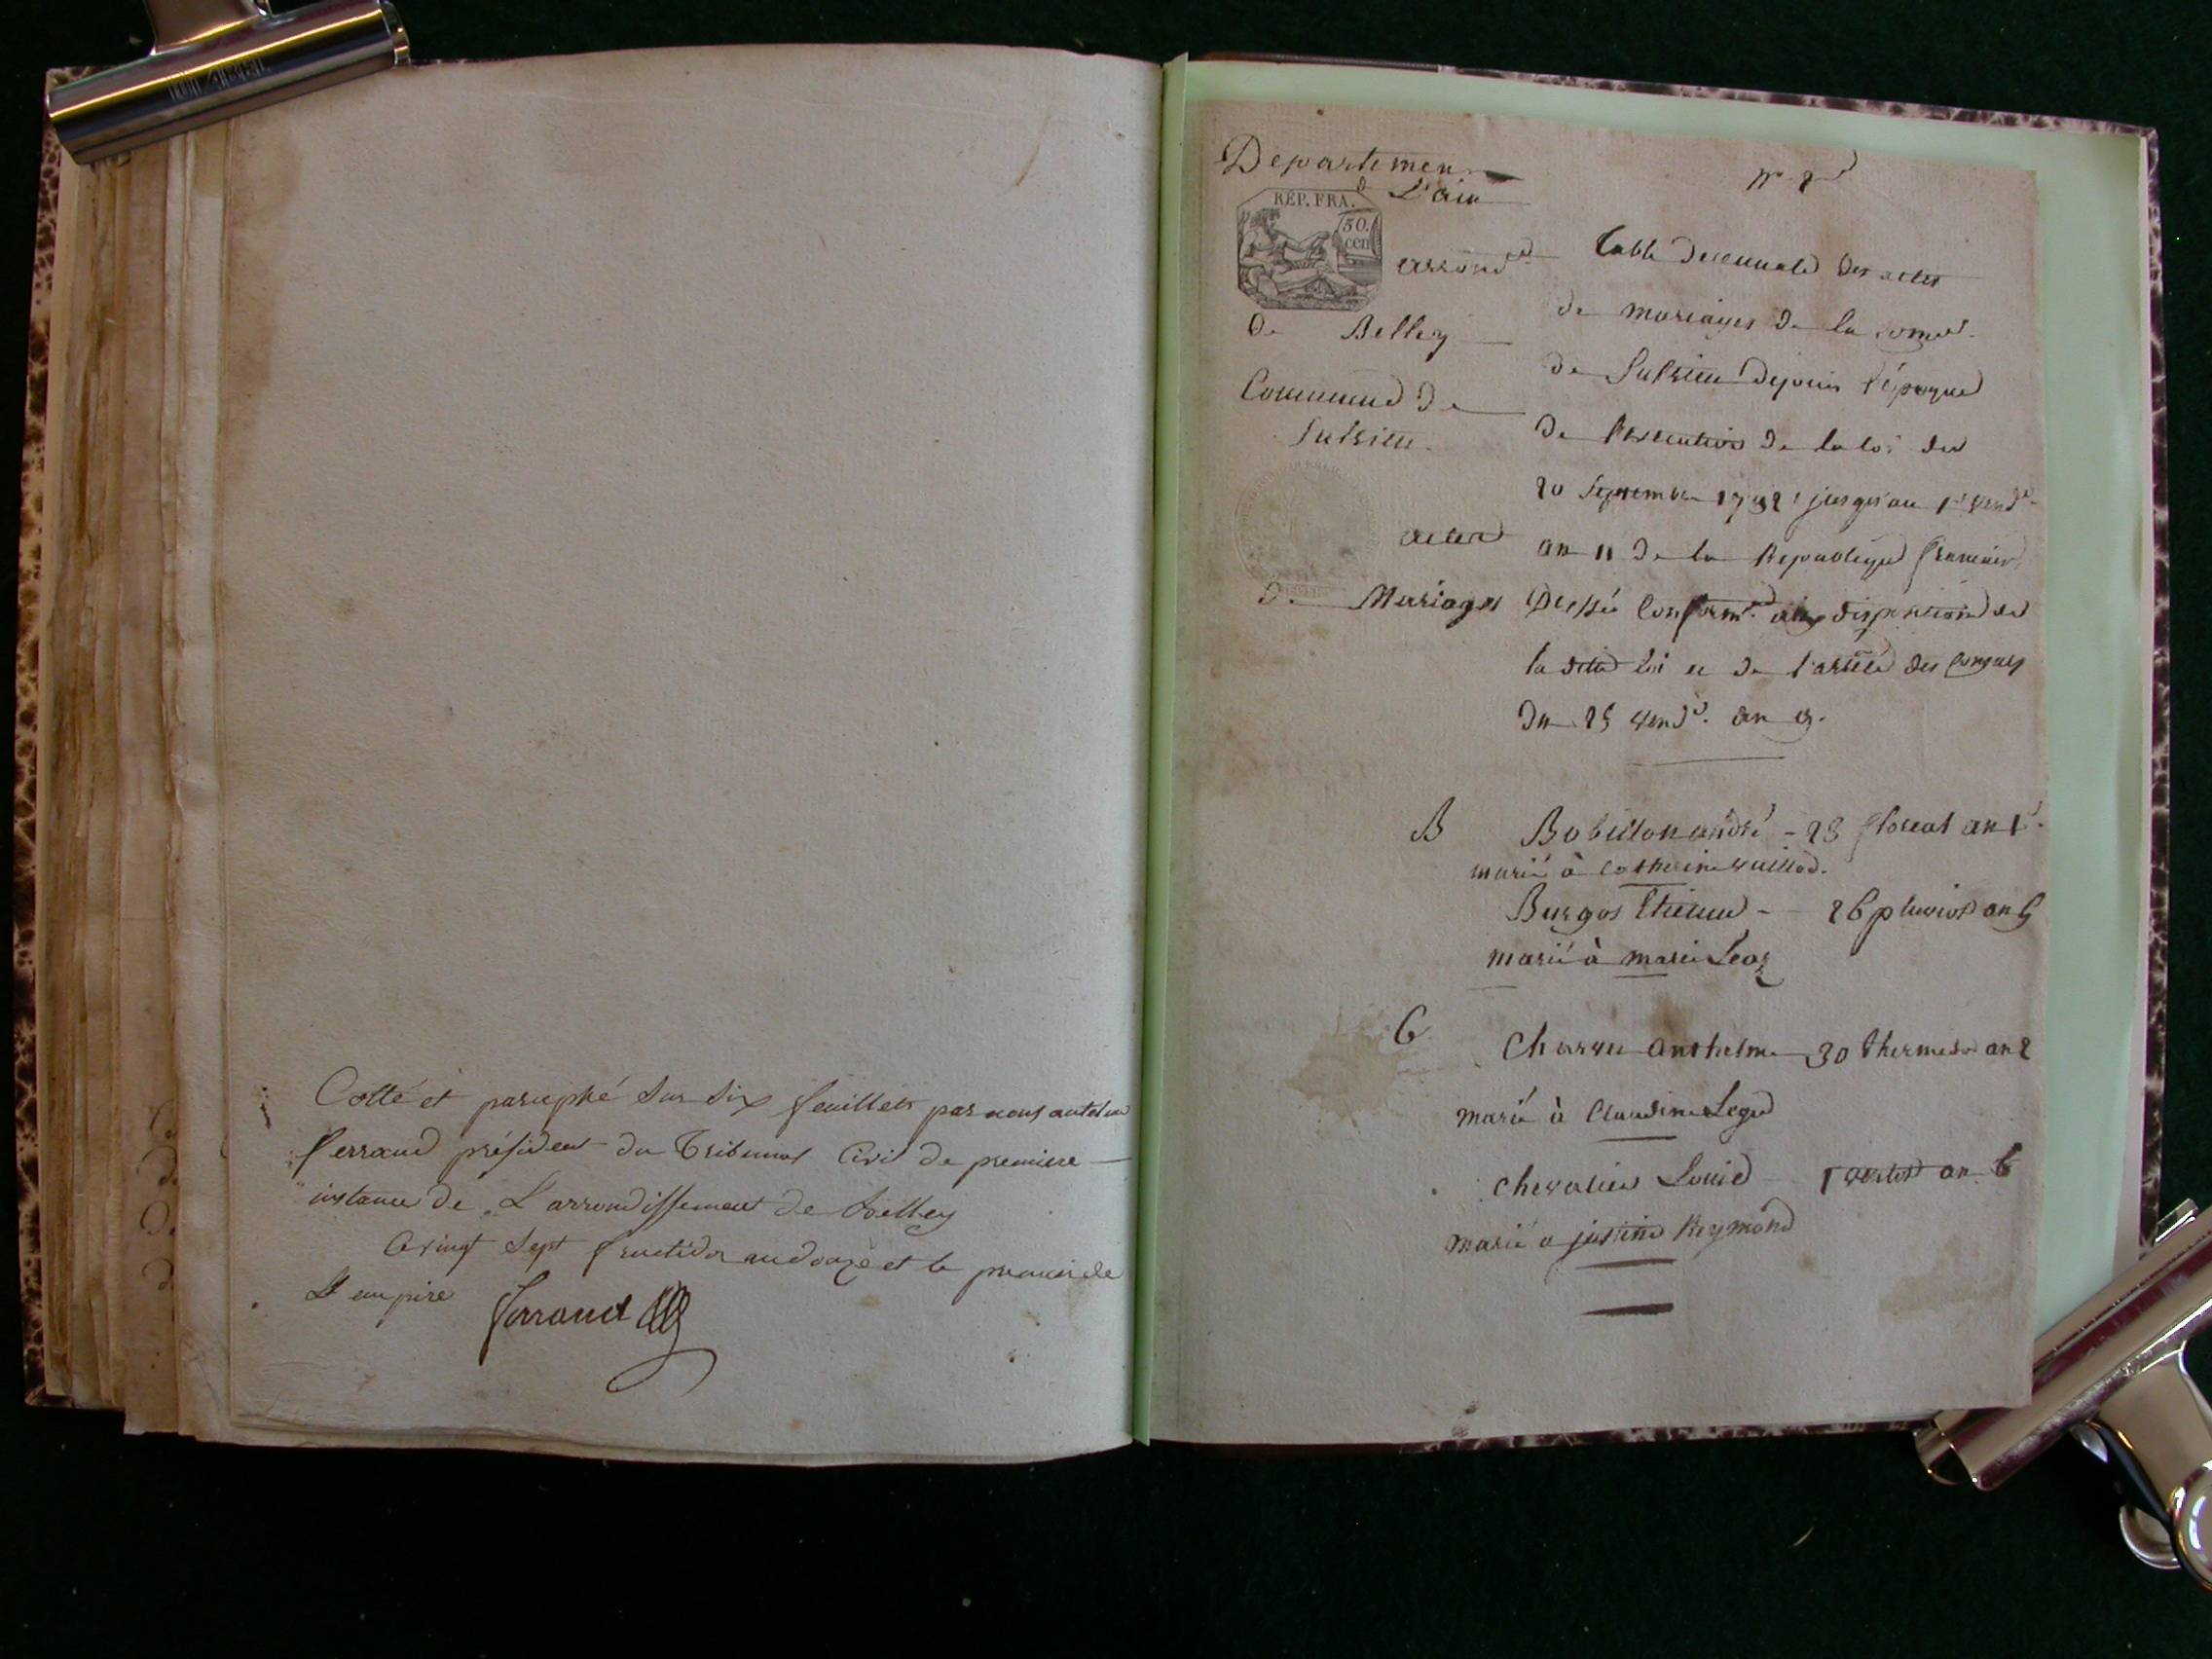 Cotté et paraphé sur six feuillets par nous antelme
ferrand président du Tribunal Civil de premiere
instance de L'arrondissement de belley
Ce vingt sept fructidor an douze et le premier de
L'empire ferrand
Departement
d L'ain
RÉP. FRA.
50.
cen
arrond.t
De Belley
Commune De
Sutrieu.
actes
De Mariages
Table decennale des actes
de mariages de la comm.
de Sutrieu depuis l'époque
de l'execution de la loi du
20 Septembre 1792 jusqu'au 1er vend.re
an 11 de la Republique francaise
Dressée conform.t aux dispositions de
la dite loi et de l'arrêté des consuls
du 25 vend.re an 9.
B Bobillon andré - 23 floreal an 1
marié à Catherine
Burgos Etienne - 26 pluviose an 5
marié à marie
C
Charvu anthelme 30 thermidor an 2
marié à Claudine
Chevalier Louis 1 ventose an 6
marié a justine Reymond